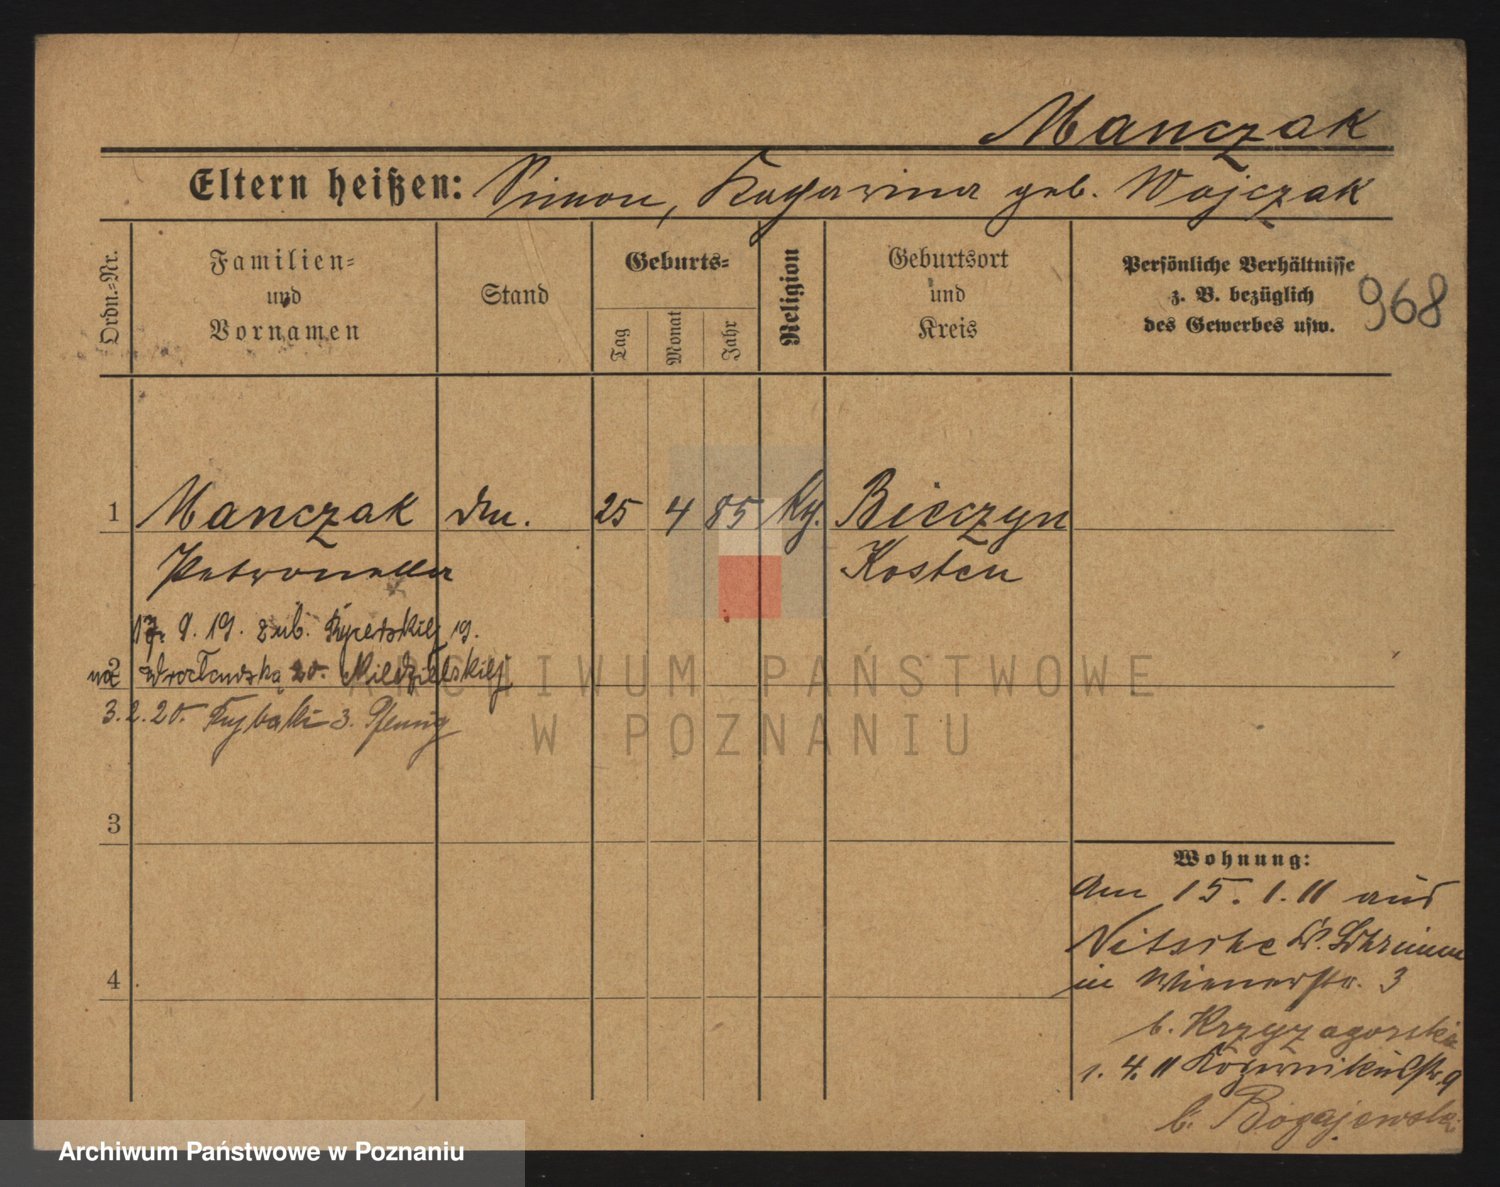 Manczak
Eltern heißen: Simon, Katharina geb. Wojczak
Ordn.=Nr.
Familien=
und
Vornamen
Stand
Geburts=
Tag
Monat
Jahr
Religion
Geburtsort
und
Kreis
Persönliche Verhältnisse
z. B. bezüglich
des Gewerbes usw.
968
1 Manczak 25 4 85 Bieczyn
Petronella Kosten
17. 9. 19. 19.
2 na 20.
3. 2. 20. 3. Pfennig
3
4
Wohnung:
Am 15. 1. 11 aus
Nitsche Schrimm
in Wienerstr. 3
b. Krzyzagorska
1. 4. 11 9
b. Bogajewski
ARCHIWUM PAŃSTWOWE
W POZNANIU
Archiwum Państwowe w Poznaniu